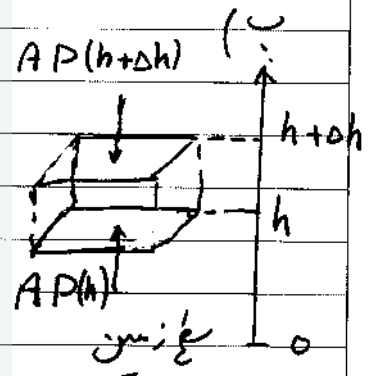 A P(h+Δh)
h+Δh
h
A P(h)
0